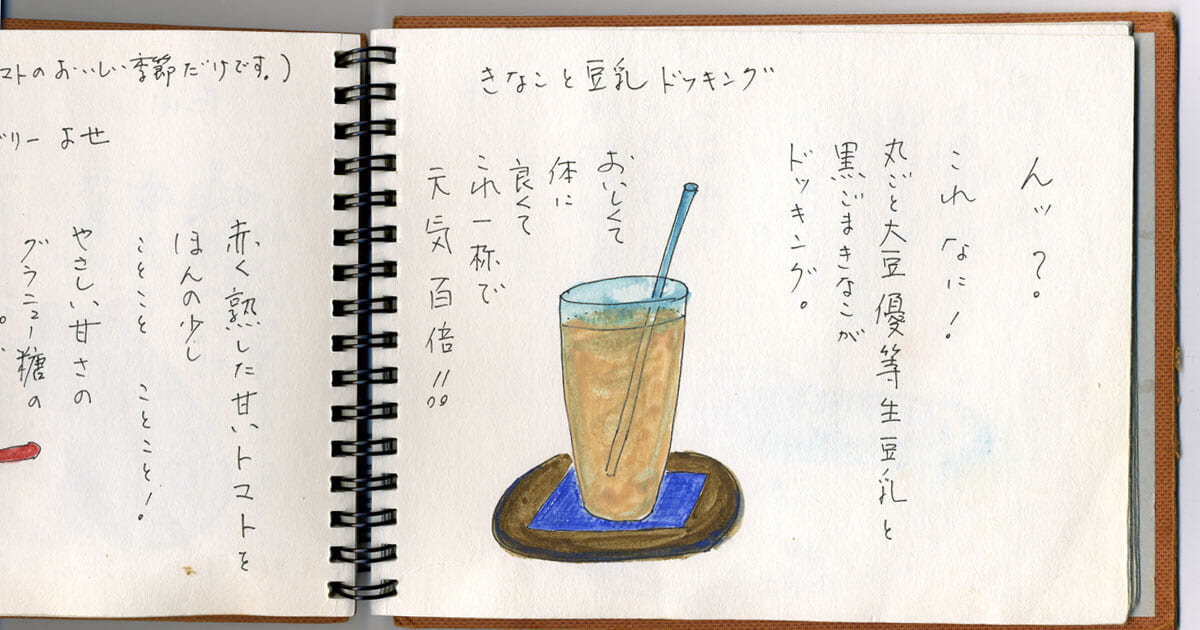 マトのおいしい季節だけです。)
リーよせ
赤く熟した甘いトマトを
ほんの少し
ことこと ことこと!
やさしい甘さの
グラニュー糖の
きなこと豆乳ドッキング
んッ?。
これなに!
丸ごと大豆優等生豆乳と
黒ごまきなこが
ドッキング。
おいしくて
体に
良くて
これ一杯で
元気百倍!!